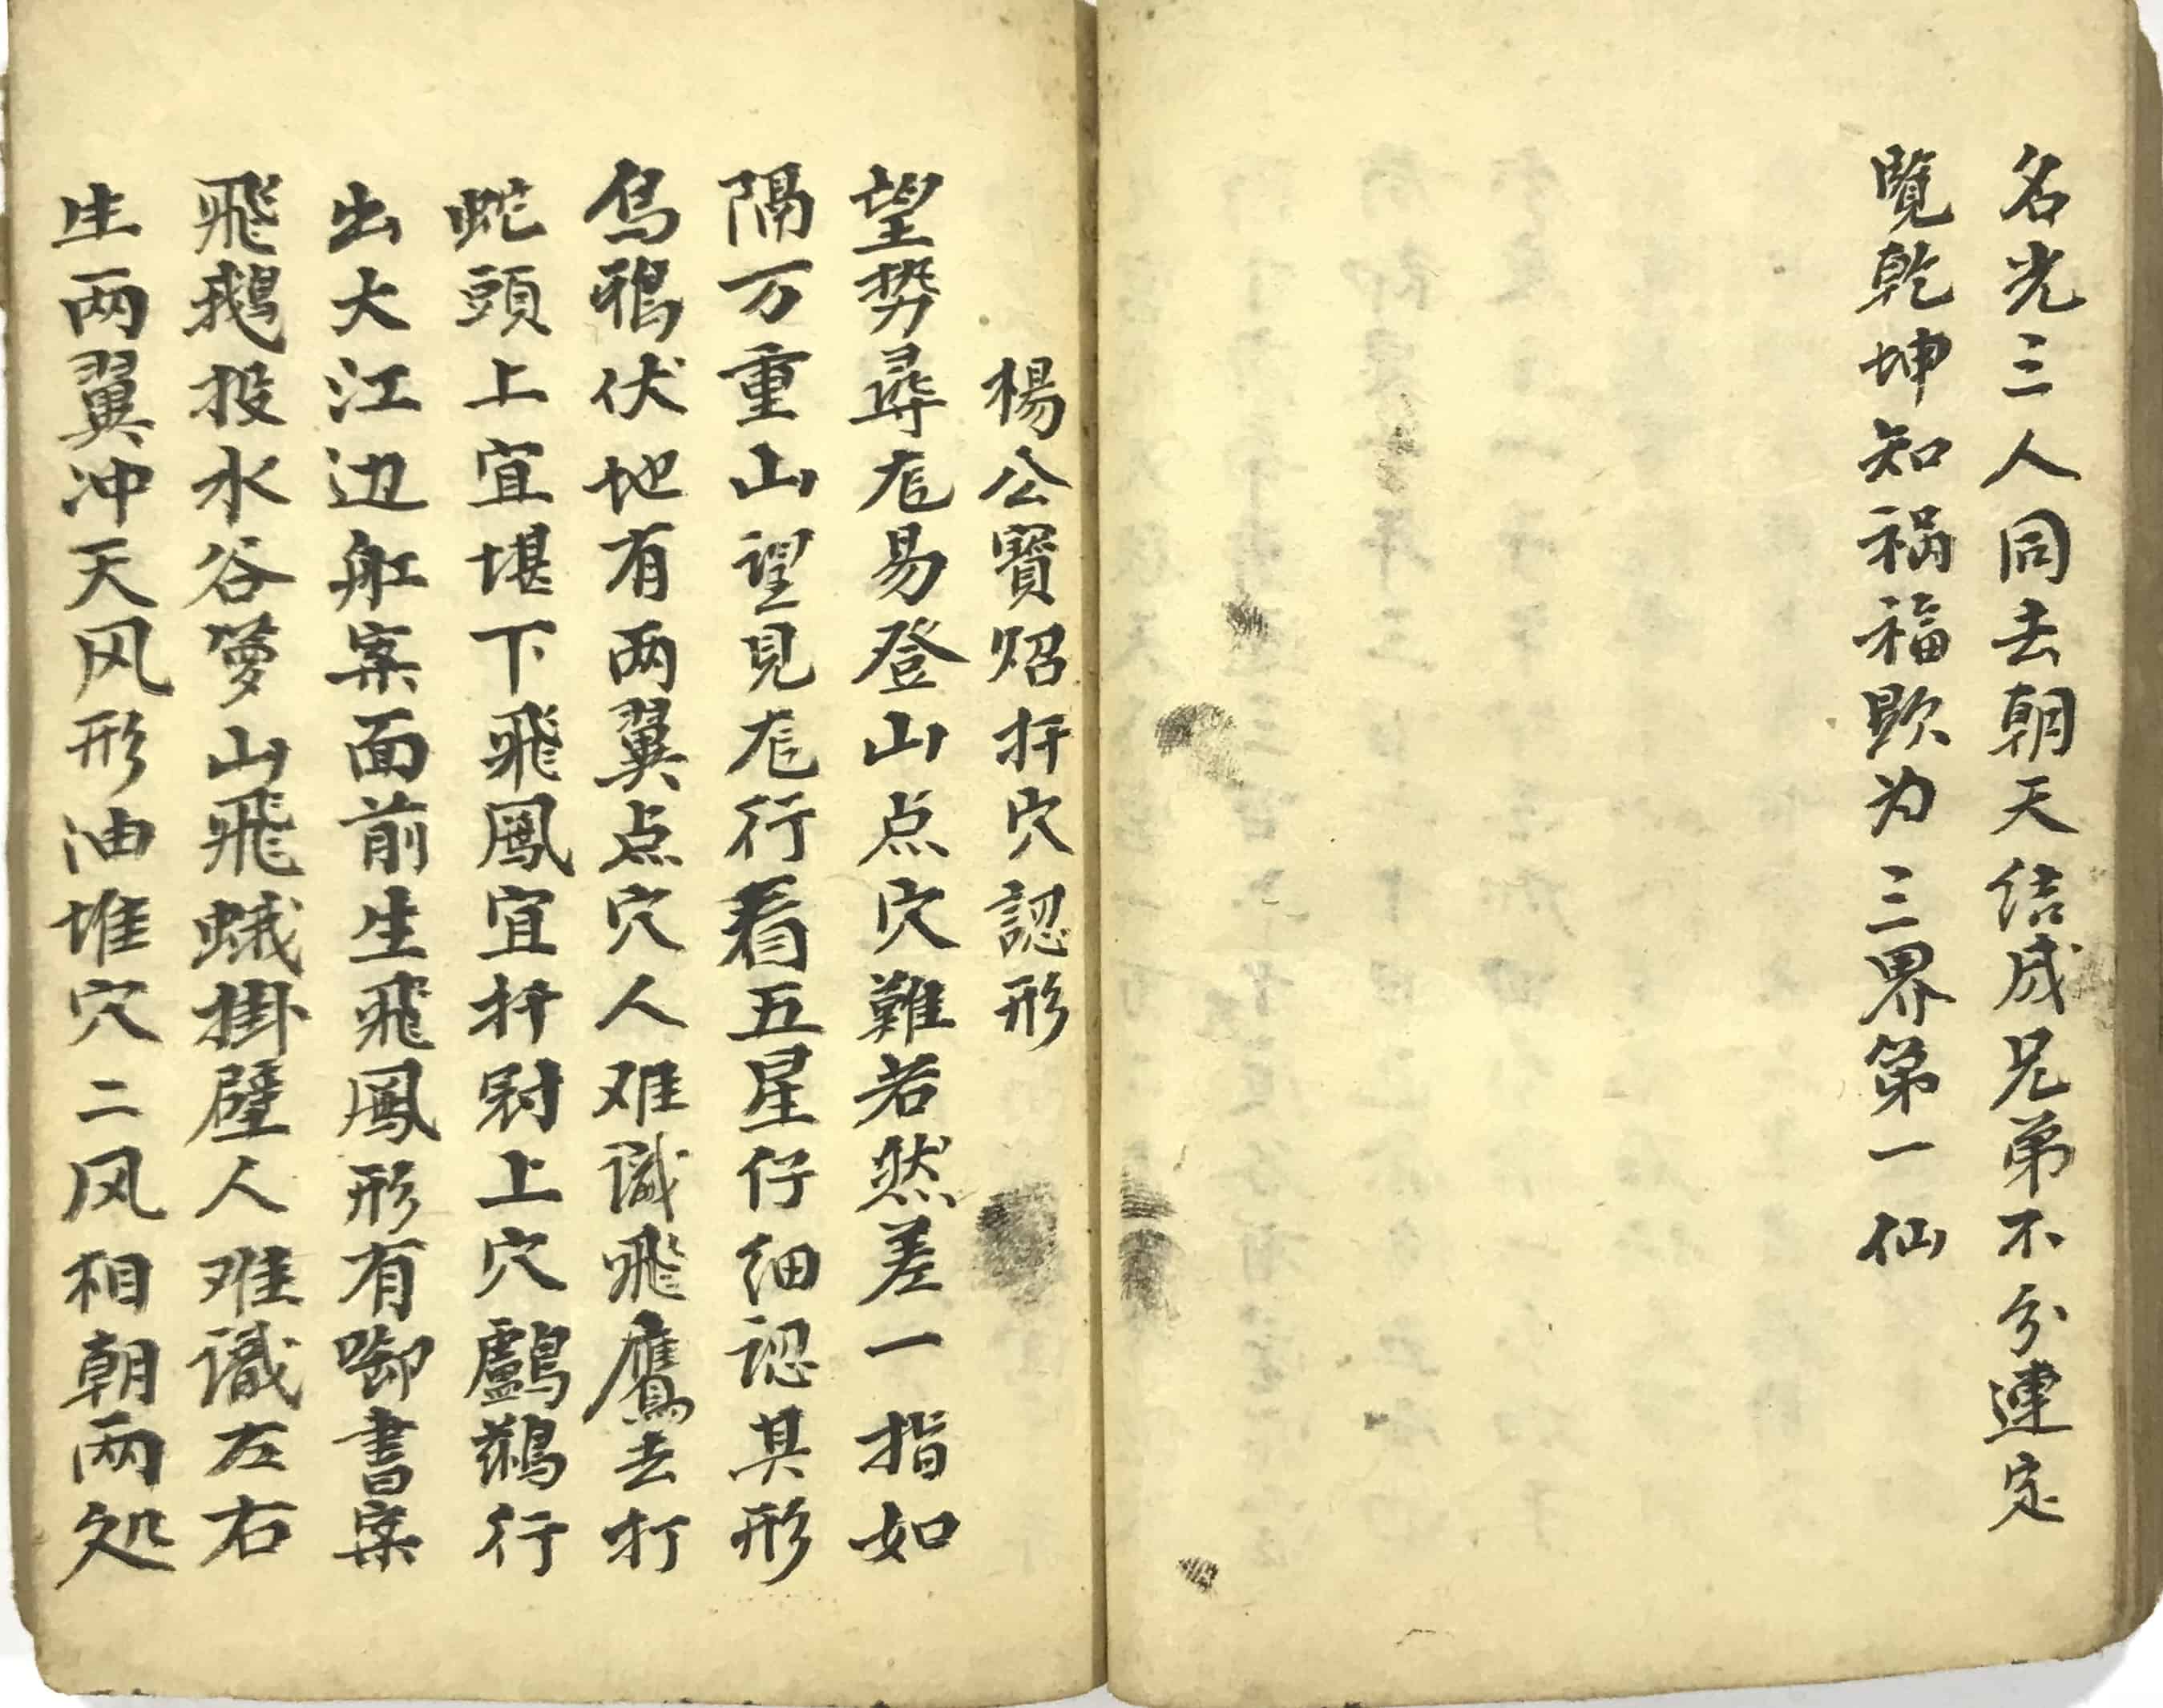 名光三人同去朝天结成兄弟不分連定
覽乾坤知祸福欧为三界第一仙
楊公寳炤扦穴認形
望势尋尨易登山点穴難若然差一指如
隔万重山望見尨行看五星仔细認其形
烏鴉伏地有两翼点穴人难識飛鷹去打
蛇頭上宜堪下飛鳳宜扦尉上穴鸕鷀行
出大江边舡案面前生飛鳳形有啣書案
飛鵝投水谷箩山飛蛾掛壁人难識左右
生两翼冲天风形油堆穴二风相朝两处